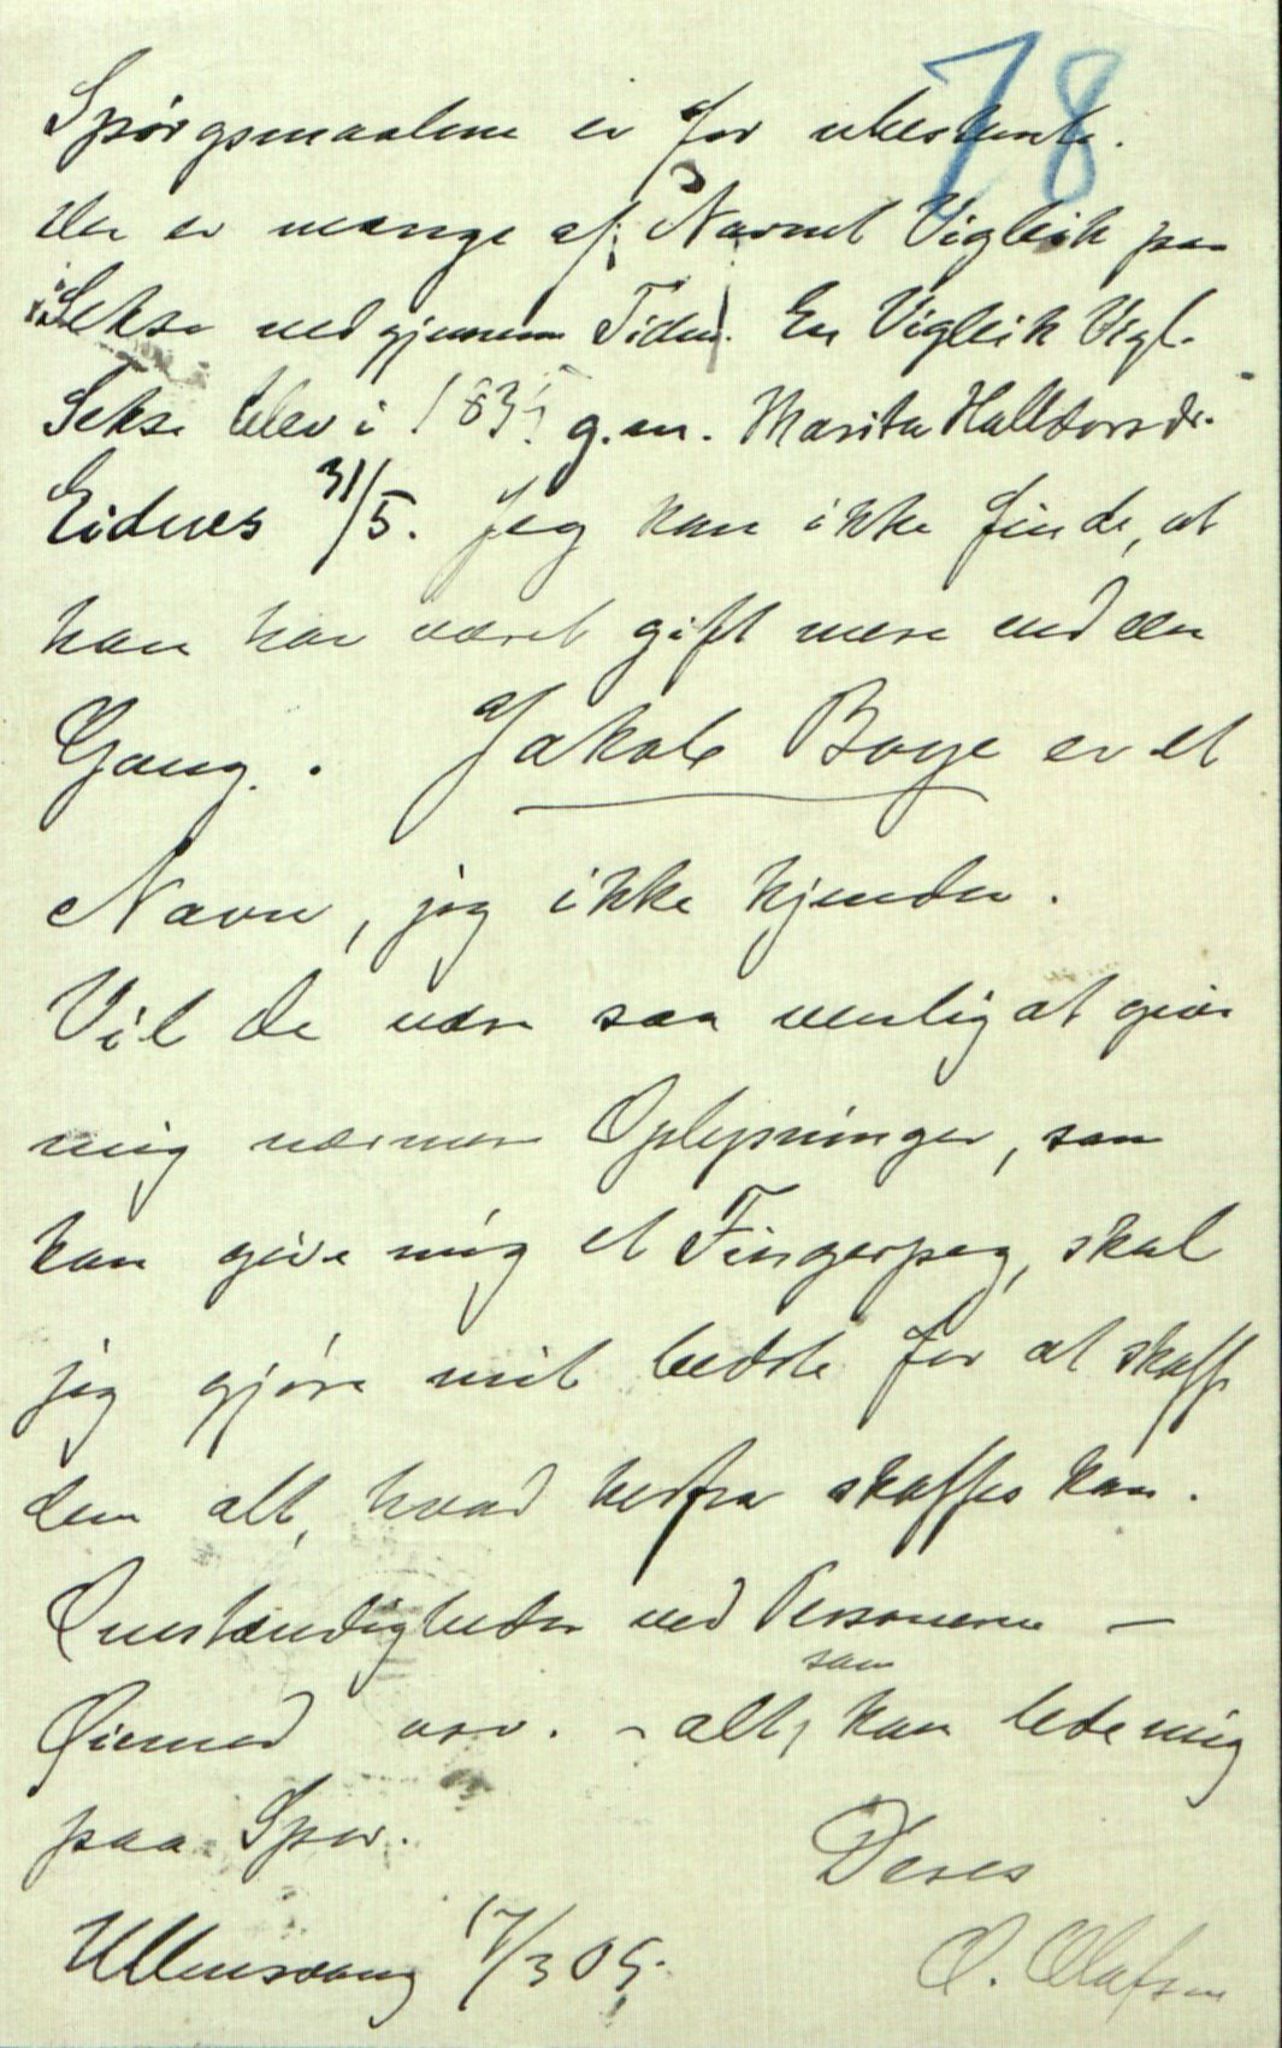 78
Spørgsmaalene er for ubestemte.
Der er mange af Navnet Vigleik paa
Sekse ned gjennem Tiden. En Vigleik Vigl.
Sekse blev i 1835 g.m. Marita Halldorsdr.
Eidnes 31/5. Jeg kan ikke finde, at
han har været gift mere end en
Gang. Jakob Boye er et
Navn, jeg ikke kjender.
Vil De være saa venlig at give
mig nærmere Oplysninger, som
kan give mig et Fingerpeg, skal
jeg gjøre mit bedste for at skaffe
dem alt, hvad herfra skaffes kan.
Omstændigheder ved Personerne –
Øiemed osv. – alt, som kan lede mig
paa Spor.
Deres
Ullensvang 17/3 05.
O. Olafsen